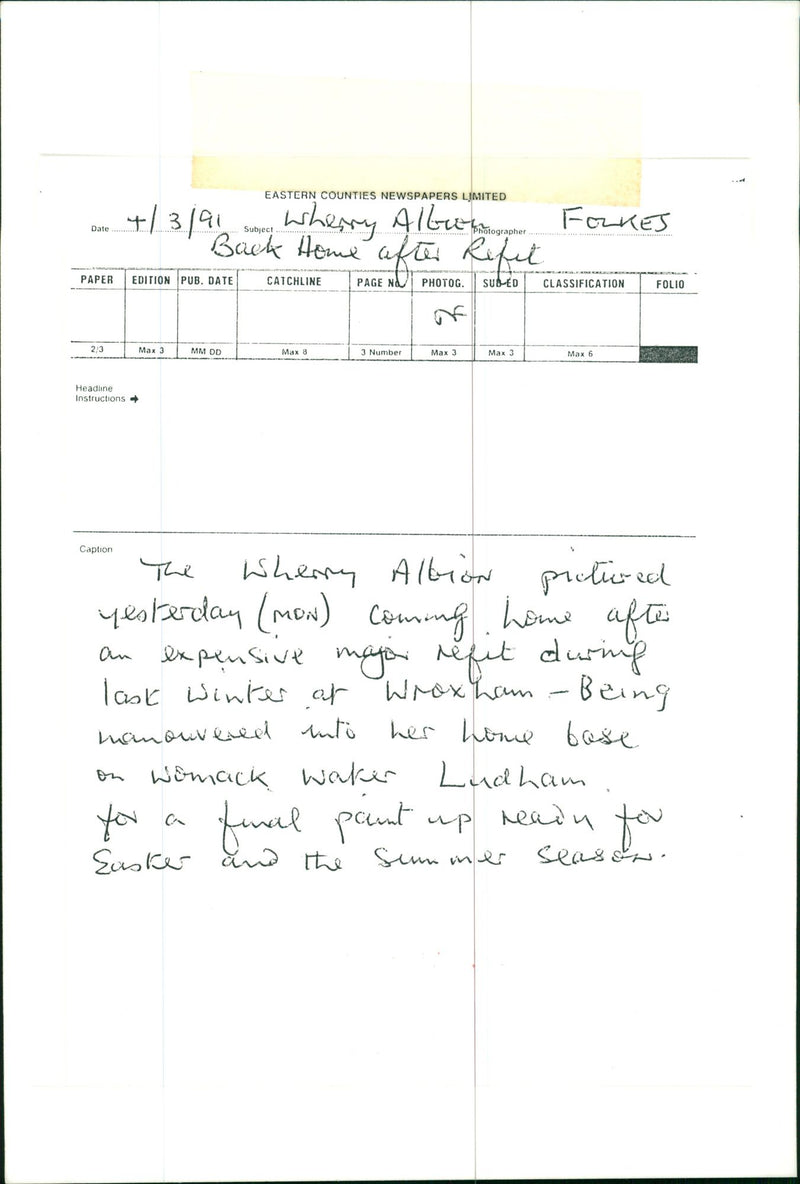 EASTERN COUNTIES NEWSPAPERS LIMITED
Date 4/3/91 Subject Wherry Albion Photographer FOLKES
Back Home after Refit
PAPER EDITION PUB. DATE CATCHLINE PAGE No PHOTOG. SUB-ED CLASSIFICATION FOLIO
2/3 Max 3 MM DD Max 8 3 Number Max 3 Max 3 Max 6
Headline
Instructions →
Caption
The Wherry Albion pictured
yesterday (MON) coming home after
an expensive major refit during
last Winter at Wroxham - Being
manouvered into her home base
on Womack Water Ludham
for a final paint up ready for
Easter and the Summer Season.